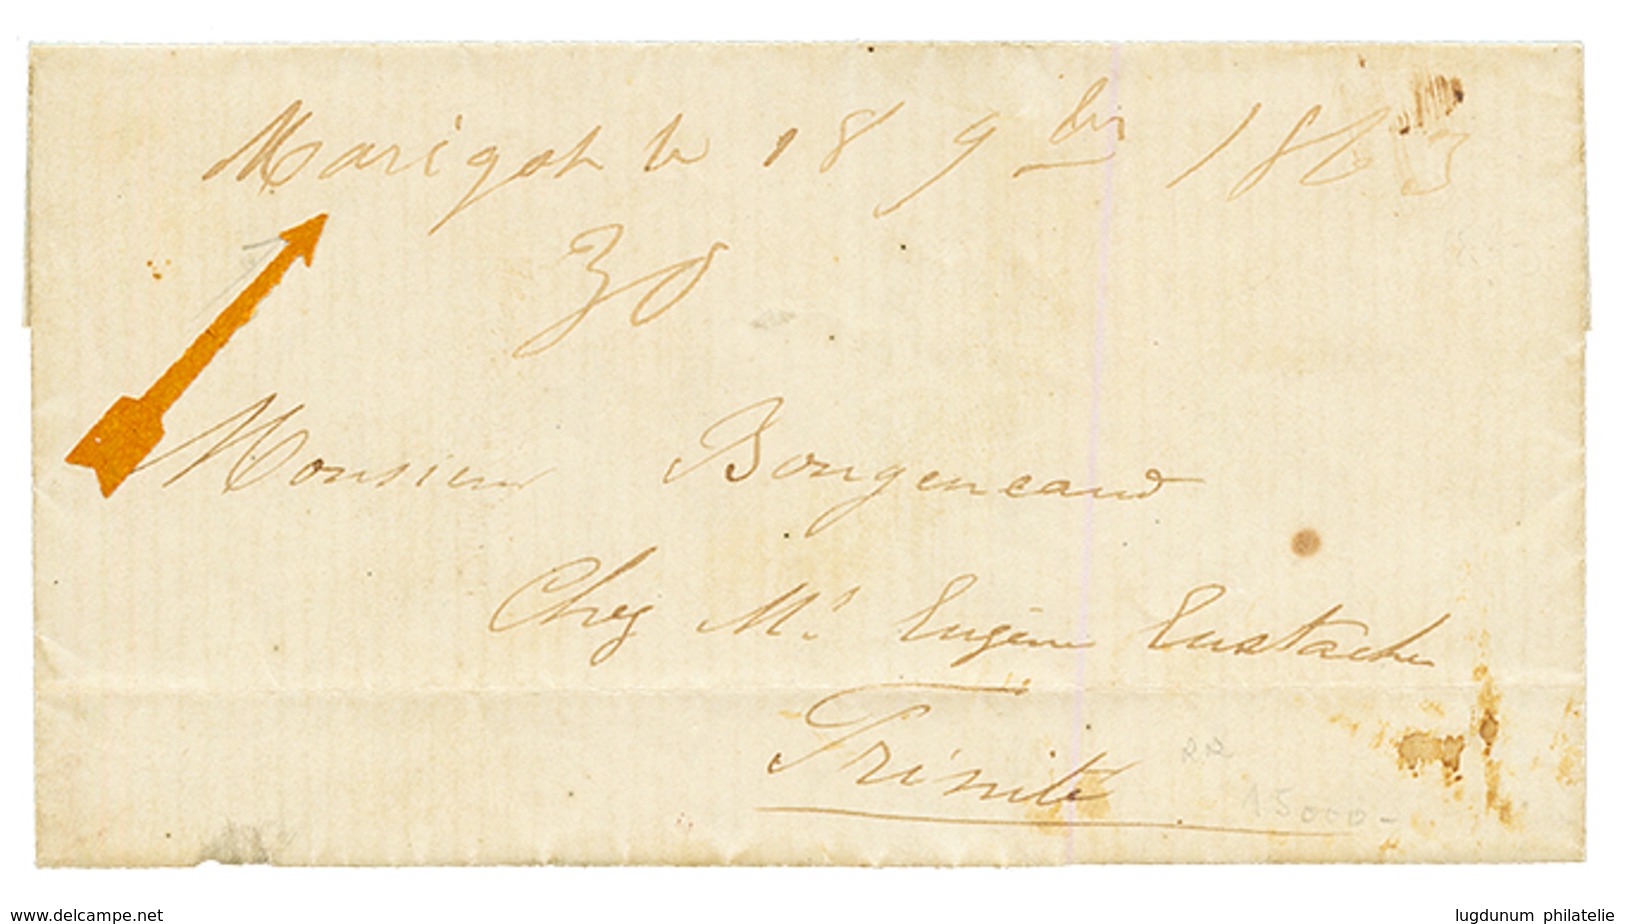 Marigot le 18 9bre 1863
30
Monsieur Bougeneaud
Chez Mr Eugène Eustache
Trinité
RR
15000-
www.delcampe.net
lugdunum philatelie